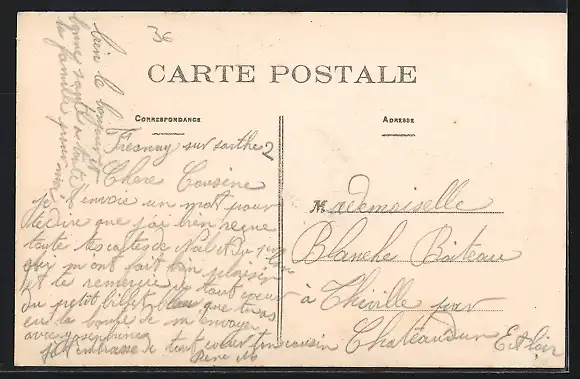 3€
CARTE POSTALE
CORRESPONDANCE
ADRESSE
Fresnay sur sarthe 2
Chere Cousine
Je t'envoie un mot pour
te dire que j'ai bien reçue
toute tes cartes de Noël et Du 1er
qui m'ont fait bien plaisir
et te remercie de tout coeur
du petit billet bleu que tu as
eu la bonté de m'envoyer
avec
Je t'embrasse de tout coeur ton cousin
René M
bien le bonjour et
bonne santé a toute
ta famille pour moi
Mademoiselle
Blanche Boiteau
à Thiville par
Châteaudun E et Loir